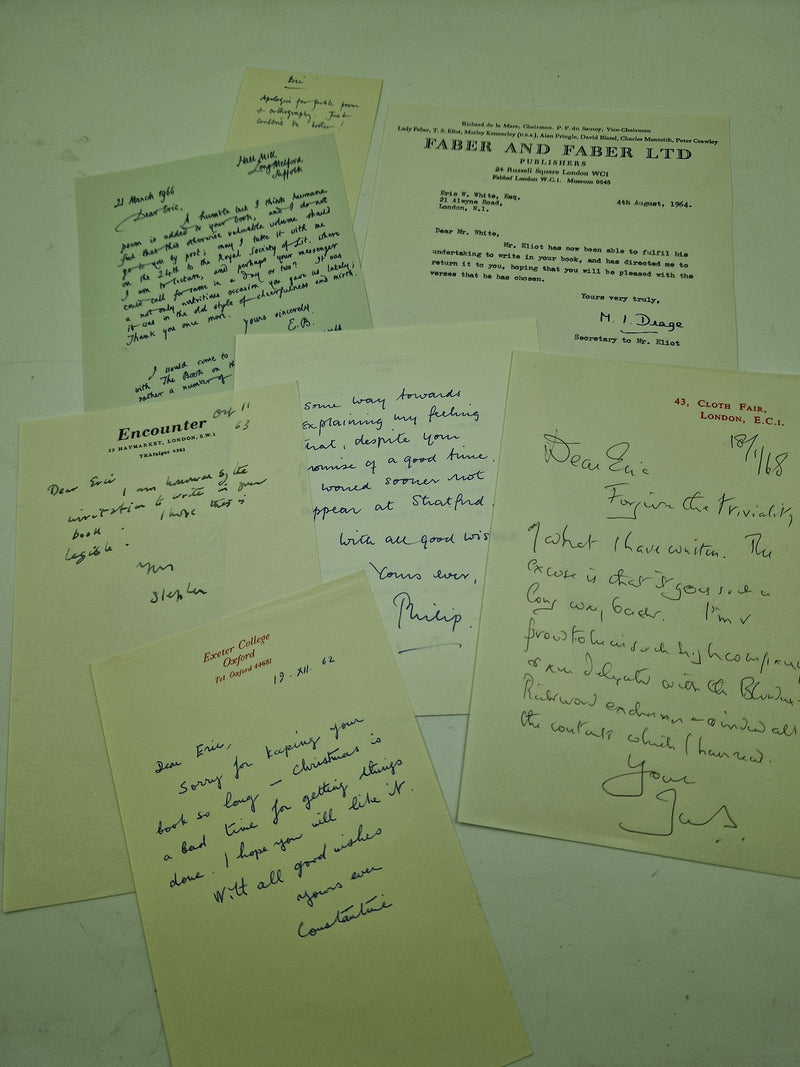 Eric
Apologies for feeble poem
& orthography. Just
couldn't do better!
Hall Mill,
Long Melford,
Suffolk
21 March 1966
Dear Eric,
A humble but I think humane
poem is added to your book, and I do not
feel that this otherwise valuable volume should
go to you by post; may I take it with me
on the 24th to the Royal Society of Lit. where
I am to lecture, and perhaps your messenger
could call for same in a day or two? It was
a not only nutritious occasion you gave us lately;
it was in the old style of cheerfulness and mirth.
Thank you once more.
Yours sincerely
E.B.
I would come to
with The Book on th
rather a number of
Richard de la Mare, Chairman. P. F. du Sautoy, Vice-Chairman
Lady Faber, T. S. Eliot, Morley Kennerley (U.S.A.), Alan Pringle, David Bland, Charles Monteith, Peter Crawley
FABER AND FABER LTD
PUBLISHERS
24 Russell Square London WC1
Fabbaf London W.C.1. Museum 9543
Eric W. White, Esq.,
21 Alwyne Road,
London, N.1.
4th August, 1964.
Dear Mr. White,
Mr. Eliot has now been able to fulfil his
undertaking to write in your book, and has directed me to
return it to you, hoping that you will be pleased with the
verses that he has chosen.
Yours very truly,
Secretary to Mr. Eliot
Encounter
25 HAYMARKET, LONDON, S.W.1
TRAfalgar 4361
Oct 11
63
Dear Eric
I am honoured by the
invitation to write in your
book. I hope this is
legible.
Yrs
Stephen
some way towards
explaining my feeling
that, despite your
romise of a good time,
would sooner not
ppear at Stratford.
With all good wis
Yours ever,
Philip.
43, CLOTH FAIR,
LONDON, E.C.1.
18/1/68
Dear Eric
Forgive the triviality
of what I have written. The
excuse is that it goes such a
long way back. I'm v
proud to be in such high company
the contents which I have read.
Yours
Exeter College
Oxford
Tel. Oxford 44681
19. XII. 62
Dear Eric,
Sorry for keeping your
book so long — Christmas is
a bad time for getting things
done. I hope you will like it.
With all good wishes
yours ever
Constantine